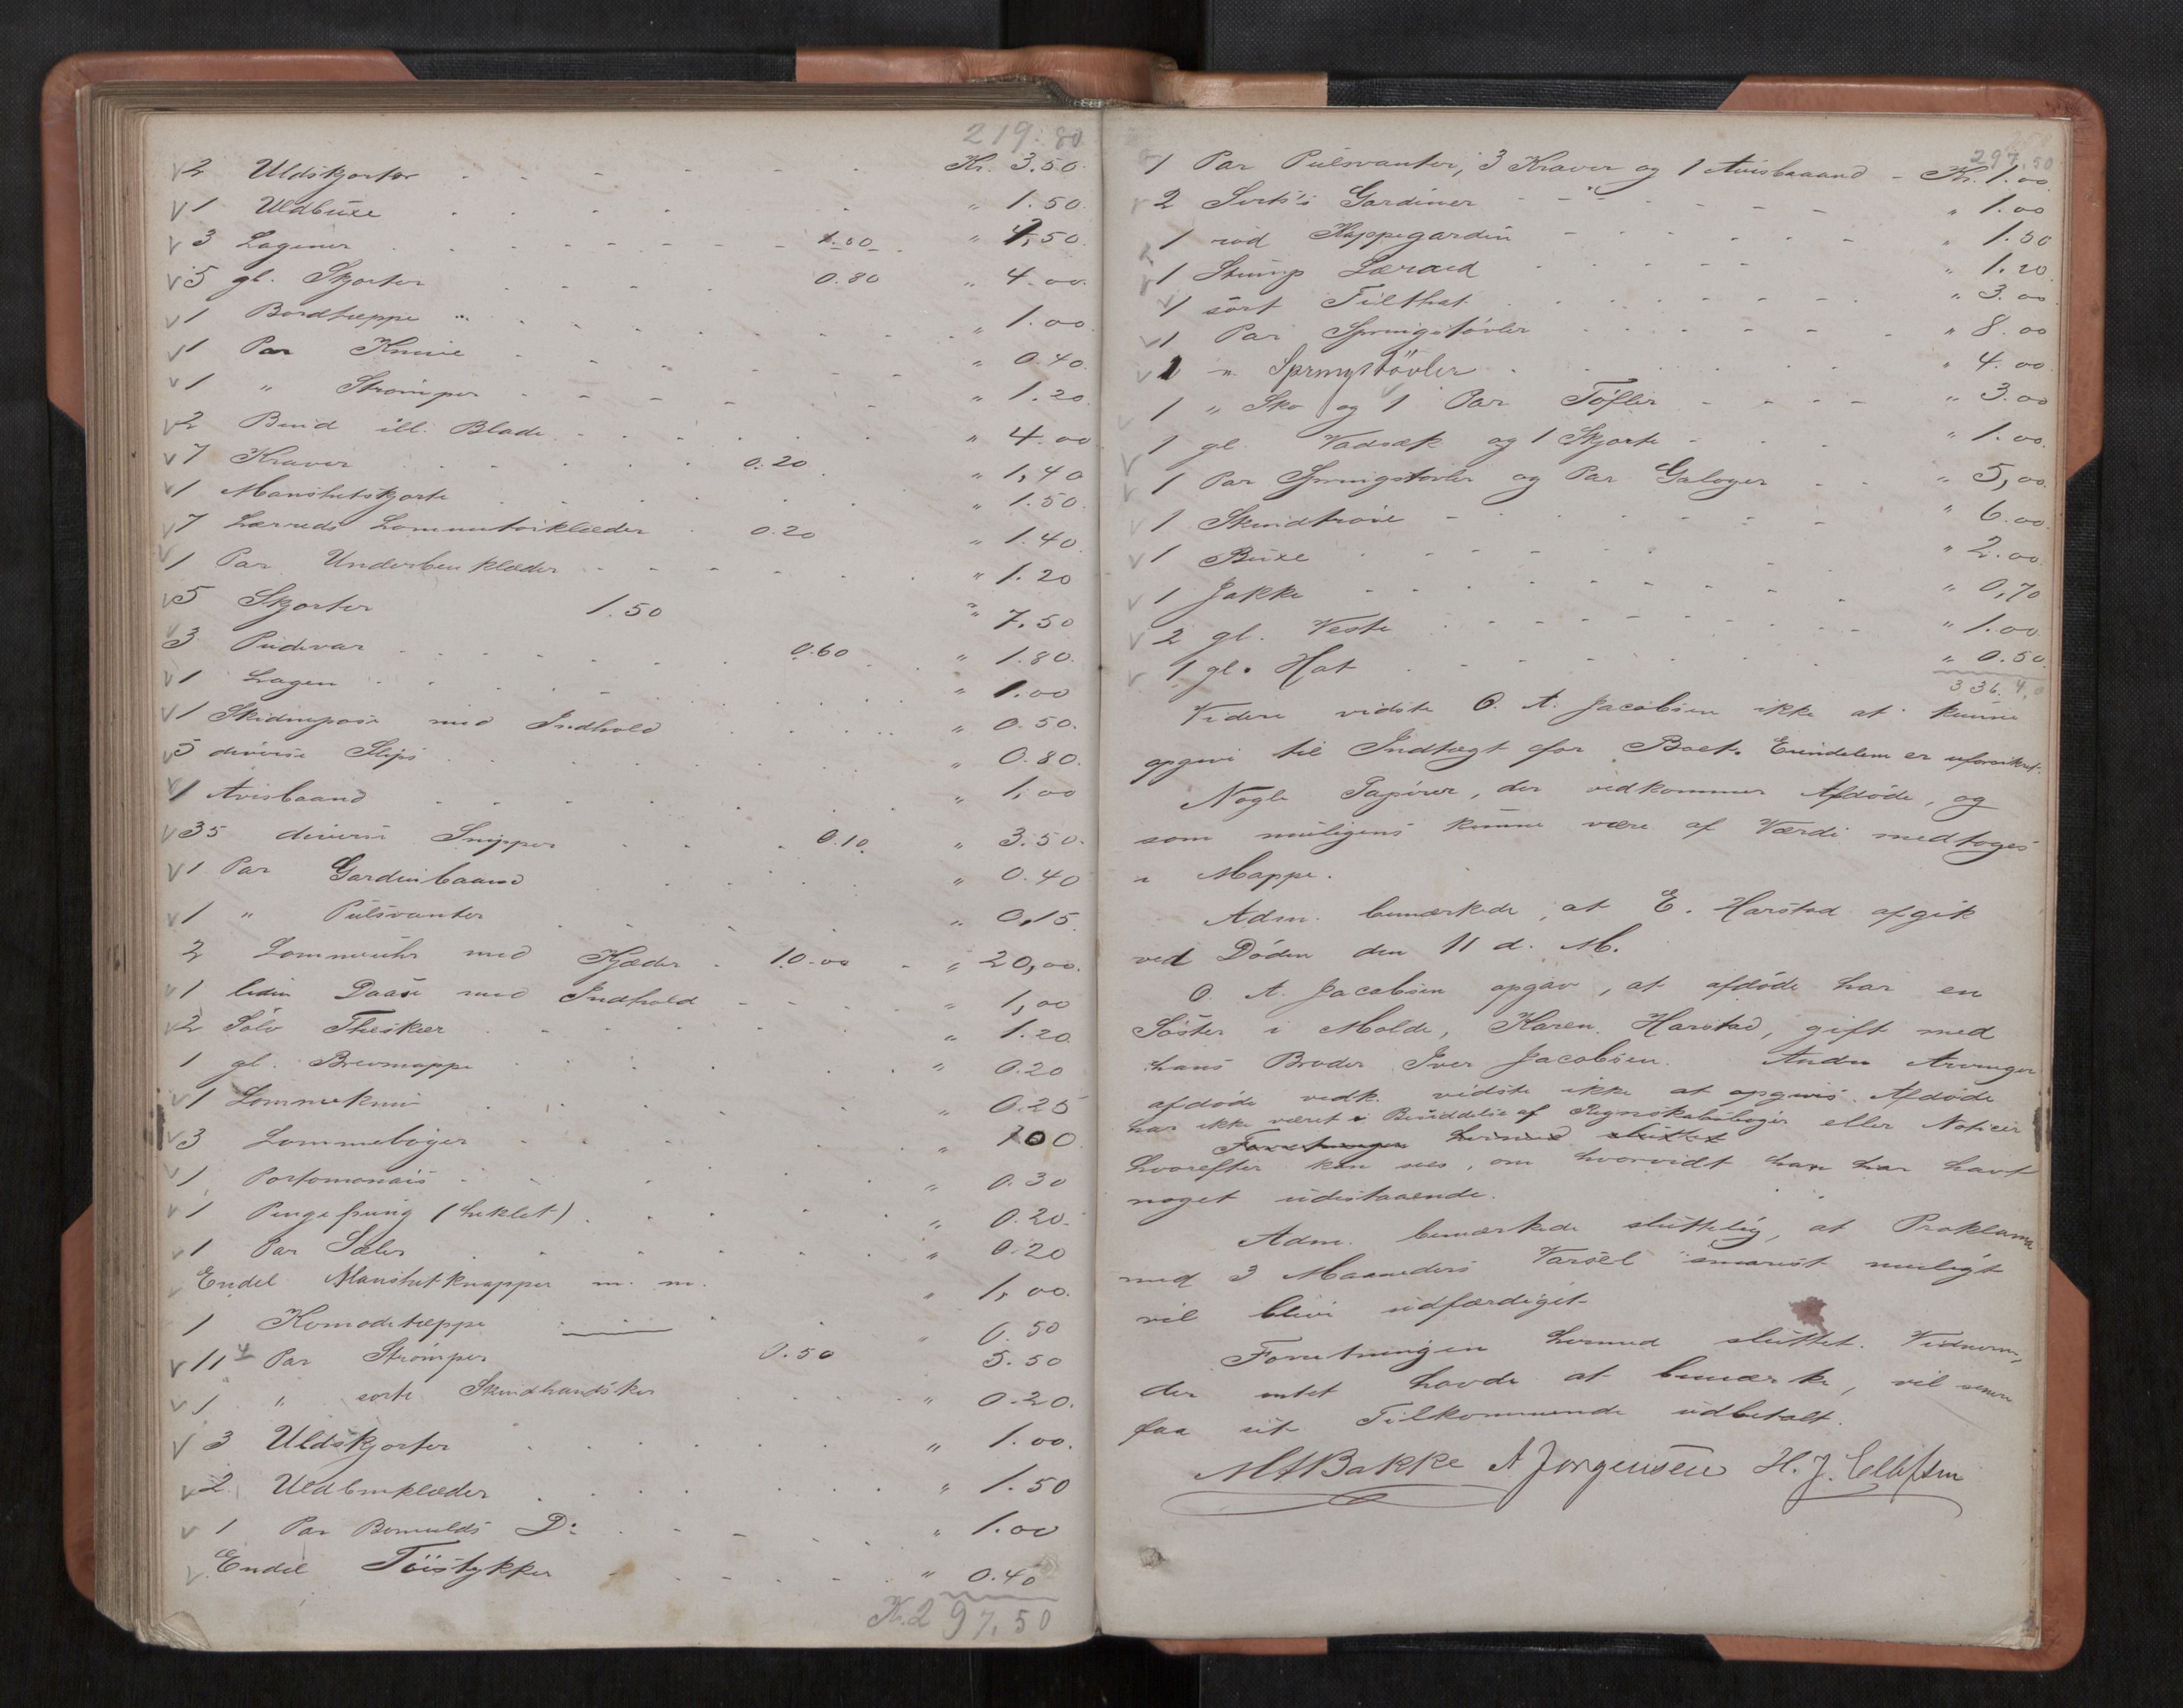 219.80
2 Uldskjorter Kr. 3.50
1 Uldbuxe " 1.50
3 Lagener 1.50 " 4,50
5 gl. Skjorter 0.80 " 4.00
1 Bordtæppe " 1.00
1 Par Knive " 0.40
1 " Strömper " 1.20
2 Bind ill. Blade " 4.00
7 Kraver 0.20 " 1,40
1 Manshetskjorte " 1.50
7 Lærreds Lommetörklæder 0.20 " 1.40
1 Par Underbenklæder " 1.20
5 Skjorter 1.50 " 7.50
3 Pudevar 0.60 " 1.80
1 Lagen " 1.00
1 Skidenpose med Indhold " 0.50
5 diverse Slips " 0.80
1 Avisbaand " 1,00
35 diverse Snipper 0.10 " 3.50
1 Par Gardinbaand " 0.40
1 " Pulsvanter " 0,15
2 Lommeuhr med Kjæder 10.00 " 20,00
1 liden Daase med Indhold " 1,00
2 Sölv Theskeer " 1.20
1 gl. Brevmappe " 0.20
1 Lommekniv " 0.25
3 Lommebøger " 100
1 Portomonais " 0.30
1 Pengepung (heklet) " 0.20
1 Par Seler " 0.20
Endel Manshetknapper m. m. " 1,00
1 Komodetæppe " 0.50
11 Par Strömper 0.50 5.50
1 " sorte Skindhandsker " 0.20
3 Uldskjorter " 1.00
2 Uldbenklæder " 1.50
1 Par Bomulds Do " 1.00
Endel Töistykker " 0.40
Kr. 297,50
297.50
1 Par Pulsvanter, 3 Kraver og 1 Avisbaand - Kr. 1.00
2 Gardiner " 1.00
1 röd Kappegardin " 1.50
1 Stump Lærred " 1.20
1 sort Filthat " 3.00
1 Par Springstövler " 8.00
1 " Springstövler " 4.00
1 " Sko og 1 Par Töfler " 3.00
1 gl. Vadsæk og 1 Skjorte " 1.00
1 Par Springstövler og Par Galoger " 5,00
1 Skindtröie " 6.00
1 Buxe " 2.00
1 Jakke " 0,70
2 gl. Veste " 1.00
1 gl. Hat " 0.50
336.40
Videre vidste O. A. Jacobsen ikke at kunne
opgive til Indtægt for Boet. Eiendelene er uforsikret.
Nogle Papirer, der vedkommer Afdöde, og
som muligens kunne være af Værdi medtoges
i Mappe.
Adm. bemærkede, at E. Harstad afgik
ved Döden den 11 d. M.
O. A. Jacobsen opgav, at afdöde har en
Söster i Molde, Karen Harstad, gift med
hans Broder Iver Jacobsen. Andre Arvinger
afdöde vedk. vidste ikke at opgives. Afdöde
har ikke været i Besiddelse af Regnskabsböger eller Noticer
Forretningen hermed sluttet
hvorefter kan sees, om hvorvidt han har havt
noget udestaaende.
Adm. bemærkede sluttelig, at Proklama
med 3 Maaneders Varsel snarest muligt
vil blive udfærdiget.
Forretningen hermed sluttet. Vidnerne,
der intet havde at bemærke, vil senere
faa sit Tilkommende udbetalt.
MABakke A Jorgensen H. J. Ellefsen